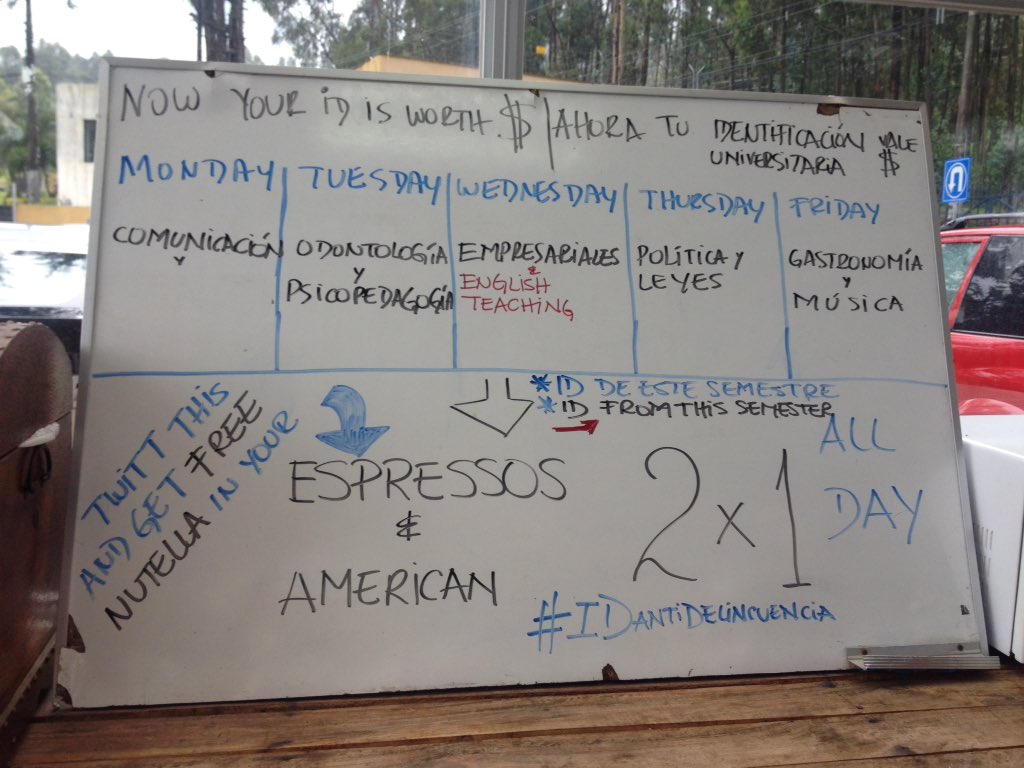 NOW YOUR iD IS WORTH.$ | AHORA TU IDENTIFICACIÓN VALE
UNIVERSITARIA $
MONDAY
COMUNICACIÓN
Y
TUESDAY
ODONTOLOGÍA
Y
PSICOPEDAGOGÍA
WEDNESDAY
EMPRESARIALES
&
ENGLISH
TEACHING
THURSDAY
POLÍTICA Y
LEYES
FRIDAY
GASTRONOMÍA
Y
MÚSICA
TWITT THIS
AND GET FREE
NUTELLA IN YOUR
ESPRESSOS
&
AMERICAN
* ID DE ESTE SEMESTRE
* ID FROM THIS SEMESTER
2 x 1
ALL
DAY
#IDANTIDELINCUENCIA